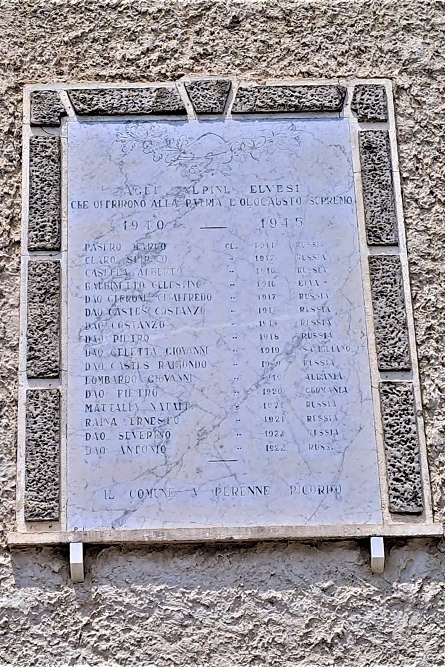 AGLI ALPINI ELVESI
CHE OFFRIRONO ALLA PATRIA L'OLOCAUSTO SUPREMO
1940 — 1945
PASERO MARIO CL. 1911 RUSSIA
CLARO SPIRITO " 1917 RUSSIA
CASTELA ALBERTO " RUSSIA
BAUDINETTO CELESTINO " 1916 ELVA
DAO GIERONE CIAFFREDO " 1917 RUSSIA
DAO CASTES COSTANZO " RUSSIA
DAO COSTANZO " RUSSIA
DAO PIETRO " 1918 RUSSIA
DAO GELETTA GIOVANNI " 1919
DAO CASTES RAIMONDO " RUSSIA
LOMBARDO GIOVANNI " ALBANIA
DAO PIETRO " 1920 GERMANIA
MATTALIA NATALE " RUSSIA
RAINA ERNESTO " 1921 RUSSIA
DAO SEVERINO " 1922 RUSSIA
DAO ANTONIO " 1922 RUSSIA
IL COMUNE A PERENNE RICORDO